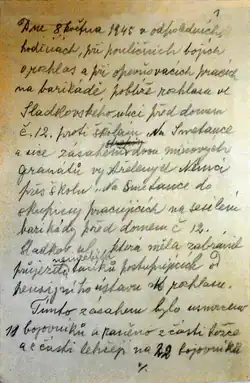 1
Dne 8 května 1945 v odpoledních
hodinách, při pouličních bojích
o rozhlas a při opevňovacích pracích
na barikádě poblíže rozhlasu ve
Sladkovského ulici před domem
č. 12. proti školám Na Smetance
a sice zásahem dvou minových
granátů vystřelených Němci
přes školu Na Smetance do
skupiny pracujících na sesílení
barikády před domem č. 12
Sladkov. ul. která měla zabránit
průjezdu tanků postupujících od
pensijního ústavu k rozhlasu.
Tímto zásahem bylo usmrceno
bojovníků a raněno z části těžce
a z části lehčeji na 22 bojovníků